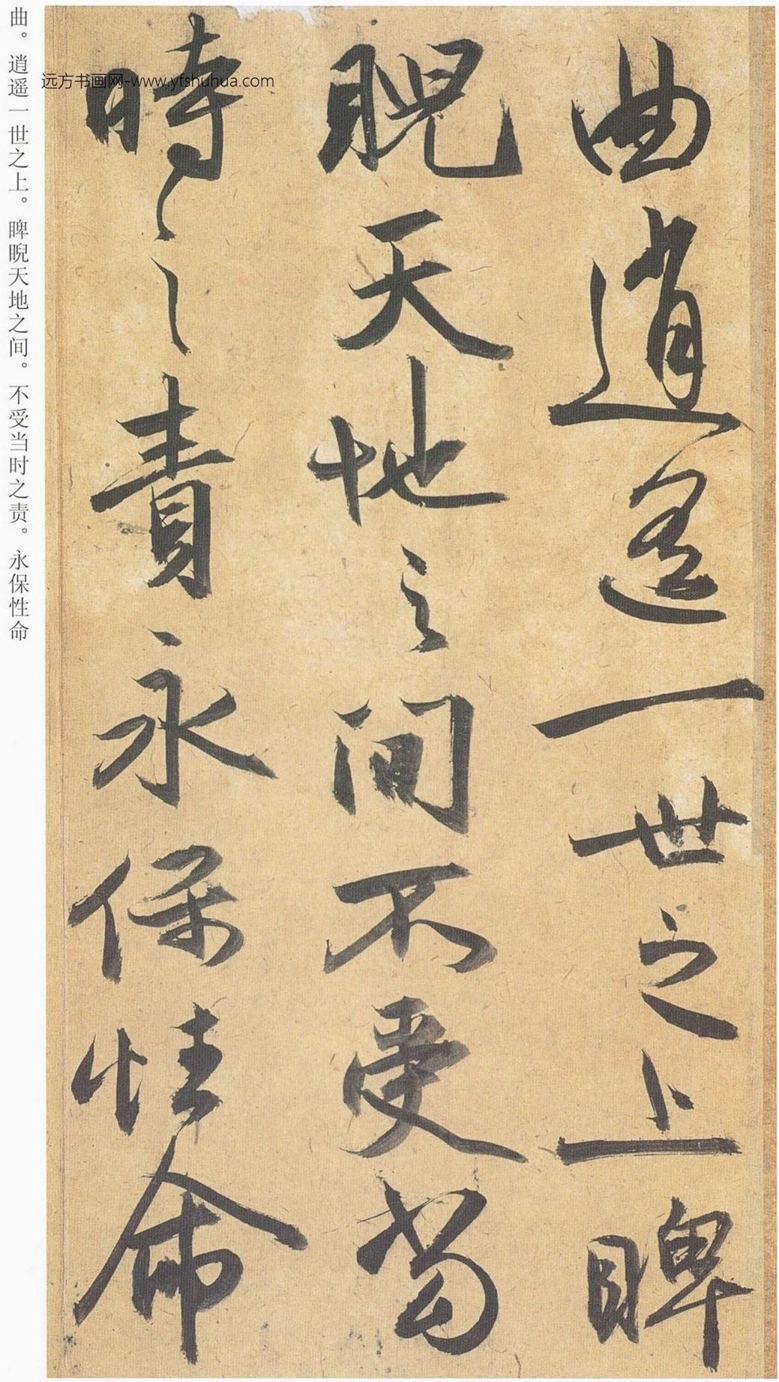 曲逍遥一世之上睥
睨天地之间不受当
時之責永保性命
曲。逍遥一世之上。睥睨天地之间。不受当时之责。永保性命
远方书画网-www.yfshuhua.com